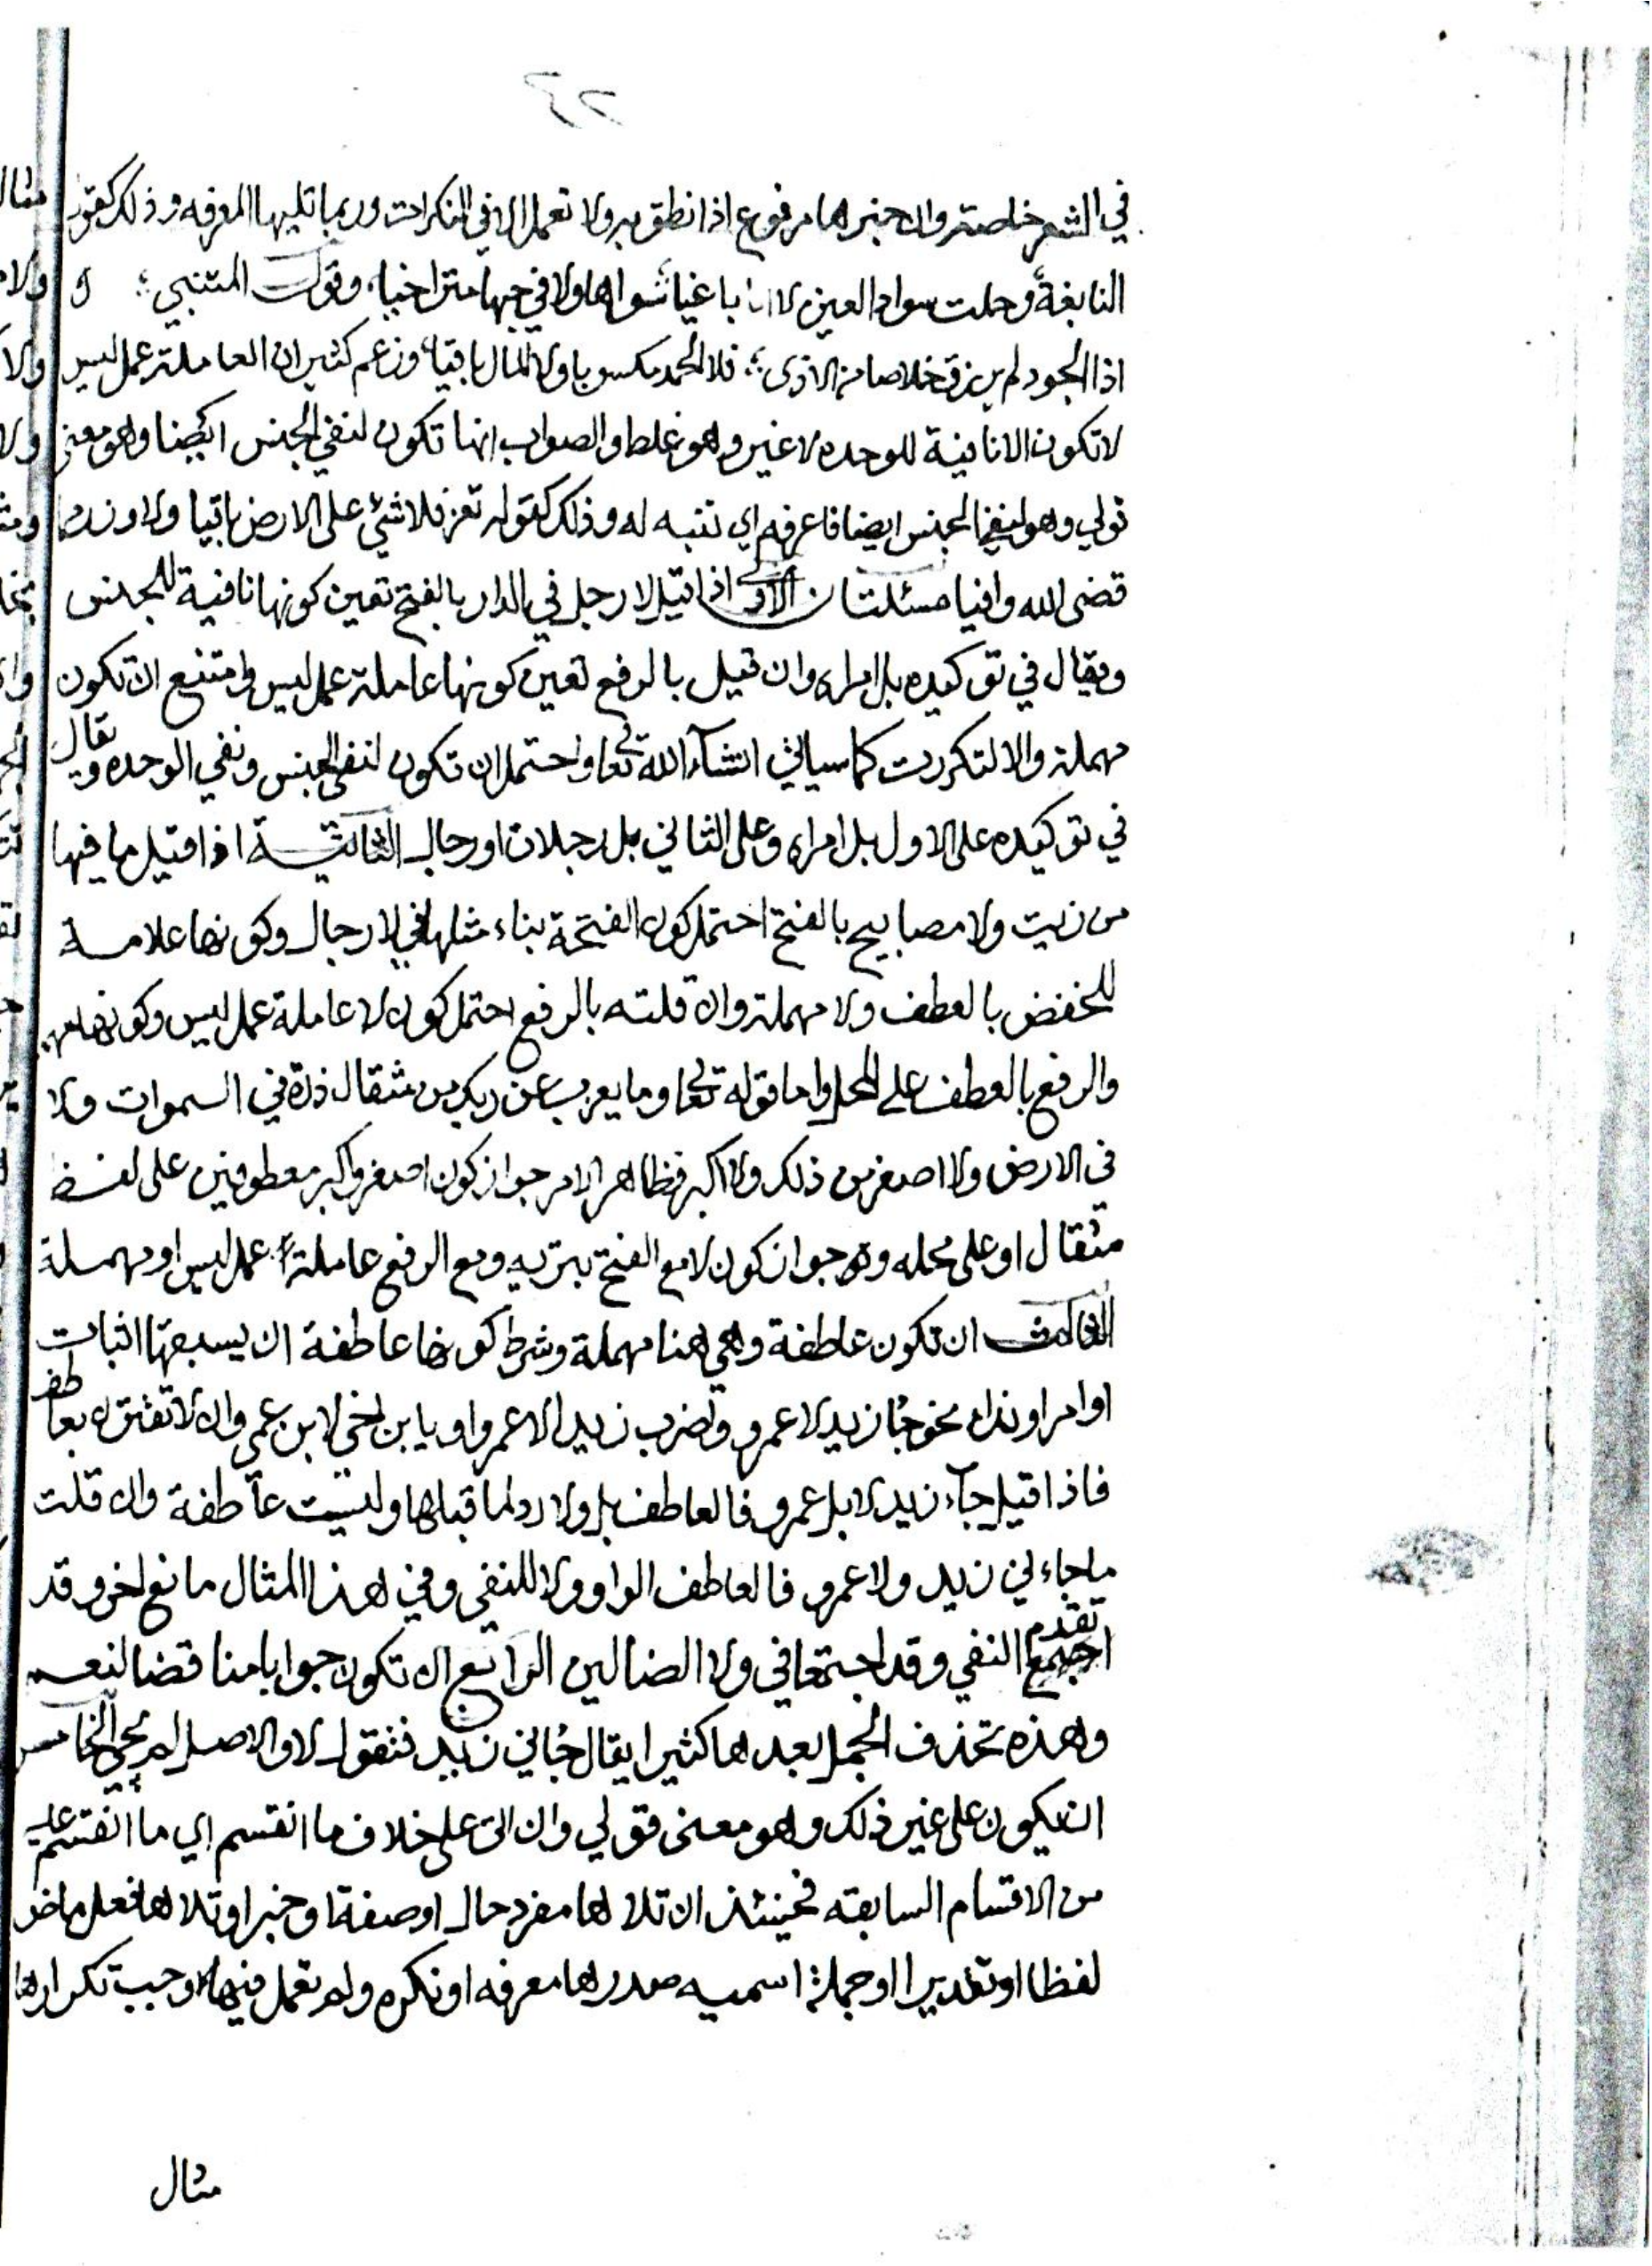 في الشعر خاصته وان خبرها مرفوع اذا نطق به ولا تعمل الا في النكرات وربما تليها المعرفه وذلك كقول
النابغة وحلت سواد العين لا انا باغيا سواها ولا في حبها متراخيا وقول المتنبي
اذا الجود لم يرزق خلاصا من الاذى فلا الحمد مكسوبا ولا المال باقيا وزعم كثير ان العاملته عمل ليس
لا تكون الا نافية للوحده لا غير وهو غلط والصواب انها تكون لنفي الجنس ايضا وهو معنى
قولي وهو لنفي الجنس ايضا فاعرفه اي تنبه له وذلك كقوله تعز فلا شئ على الارض باقيا ولا وزر مما
قضى الله واقيا مسئلتان الاولى اذا قيل لا رجل في الدار بالفتح تعين كونها نافية للجنس
ويقال في توكيده بل امراه وان قيل بالرفع تعين كونها عاملة عمل ليس وامتنع ان تكون
مهملة والا لتكررت كما سياتي انشآء الله تعا واحتمل ان تكون لنفي الجنس ونفي الوحده ويقال
في توكيده على الاول بل امراه وعلى الثاني بل رجلان او رجال الثانية اذا قيل ما فيها
من زيت ولا مصابيح بالفتح احتمل كون الفتحة بناء مثلها في لا رجال وكونها علامة
للخفض بالعطف ولا مهملة وان قلته بالرفع احتمل كون لا عاملة عمل ليس وكونها مهملة
والرفع بالعطف على المحل واما قوله تعا وما يعزب عن ربك من مثقال ذرة في السموات ولا
في الارض ولا اصغر من ذلك ولا اكبر فظاهر الامر جواز كون اصغر واكبر معطوفين على لفظ
مثقال او على محله وجواز كون لا مع الفتح تبريه ومع الرفع عاملة عمل ليس او مهملة
الثالث ان تكون عاطفة وهي هنا مهملة وشرط كونها عاطفة ان يسبقها اثبات
او امر او نداء نحو جا زيد لا عمرو واضرب زيدا لا عمروا ويا بن اخي لا بن عمي وان لا تقترن بعاطف
فاذا قيل جآء زيد لا بل عمرو فالعاطف بل ولا رد لما قبلها وليست عاطفة وان قلت
ما جاءني زيد ولا عمرو فالعاطف الواو ولا للنفي وفي هذا المثال مانع اخر وقد
تقدم النفي وقد اجتمعا في ولا الضالين الرابع ان تكون جوابا مناقضا لنعم
وهذه تحذف الجمل بعدها كثيرا يقال جاني زيد فتقول لا والاصل لم يجي الخامس
ان يكون على غير ذلك وهو معنى قولي وان اتى على خلاف ما انقسم اي ما انقسم عليه
من الاقسام السابقه فحينئذ ان تلاها مفرد حال او صفة او خبر او تلاها فعل ماض
لفظا او تقديرا او جملة اسميه صدرها معرفه او نكره ولم تعمل فيها وجب تكرارها
مثال